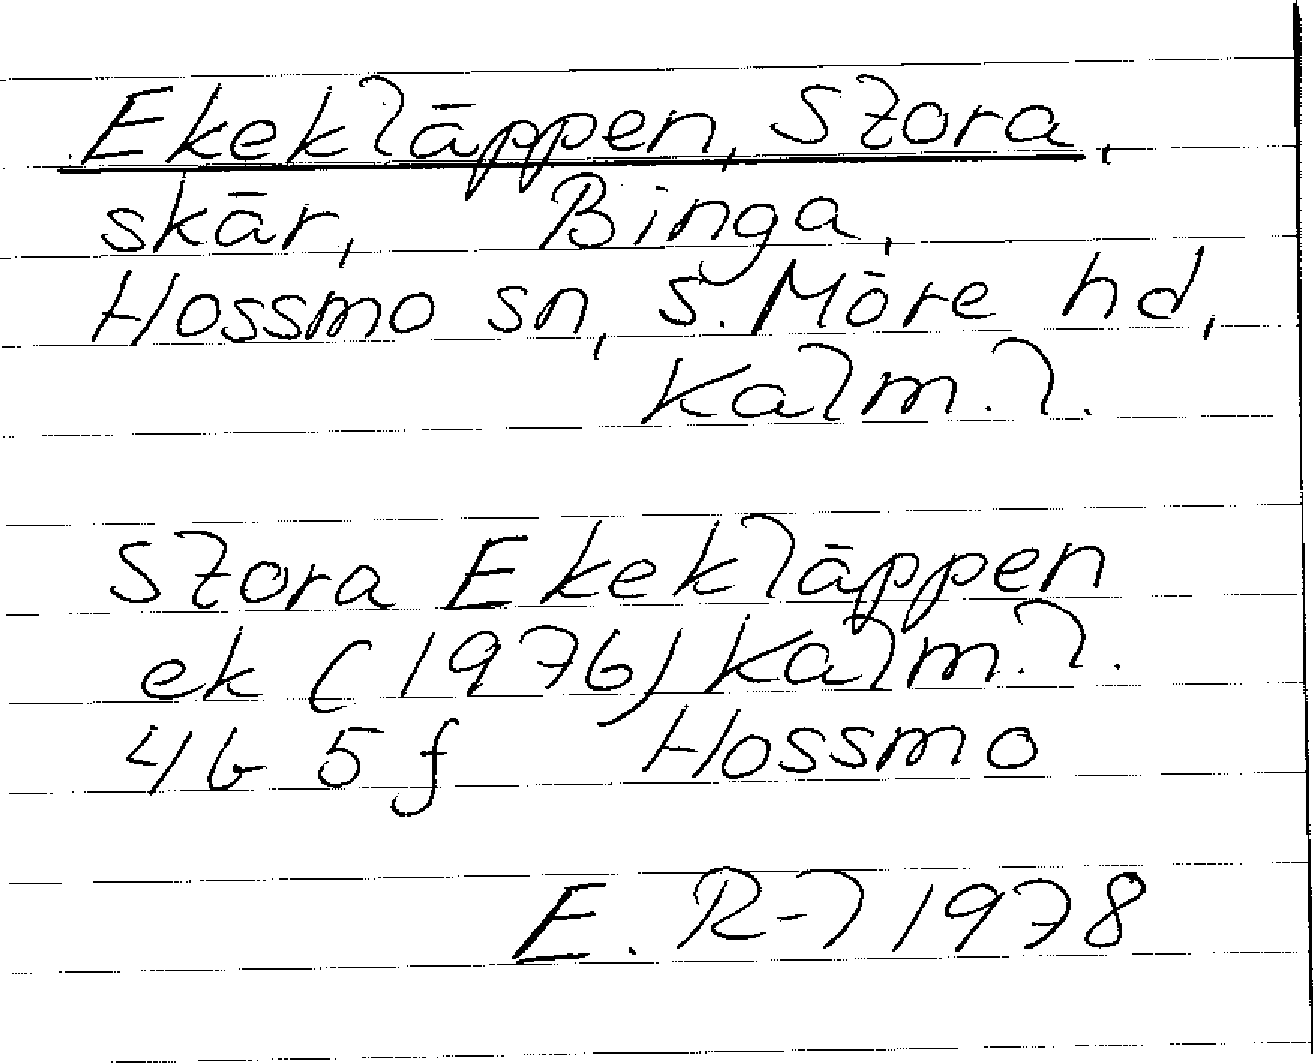 Ekekläppen, Stora,
skär, Binga,
Hossmo sn, S. Möre hd,
Kalm. l.
Stora Ekekläppen
ek (1976) Kalm. l.
4G 5f Hossmo
E. R-l 1978